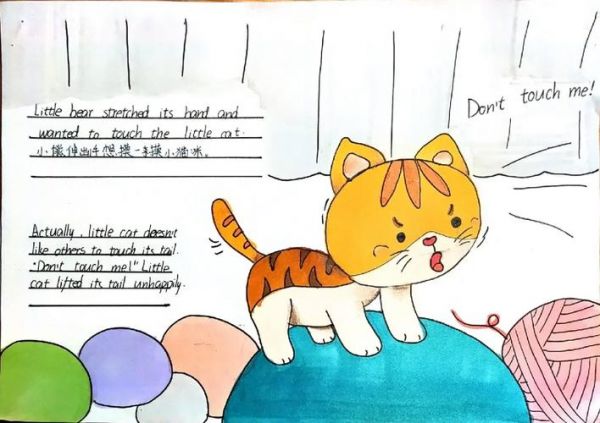 Little bear stretched its hand and
wanted to touch the little cat.
小熊伸出手想摸一摸小猫咪。
Don't touch me!
Actually, little cat doesn't
like others to touch its tail.
"Don't touch me!" Little
cat lifted its tail unhappily.